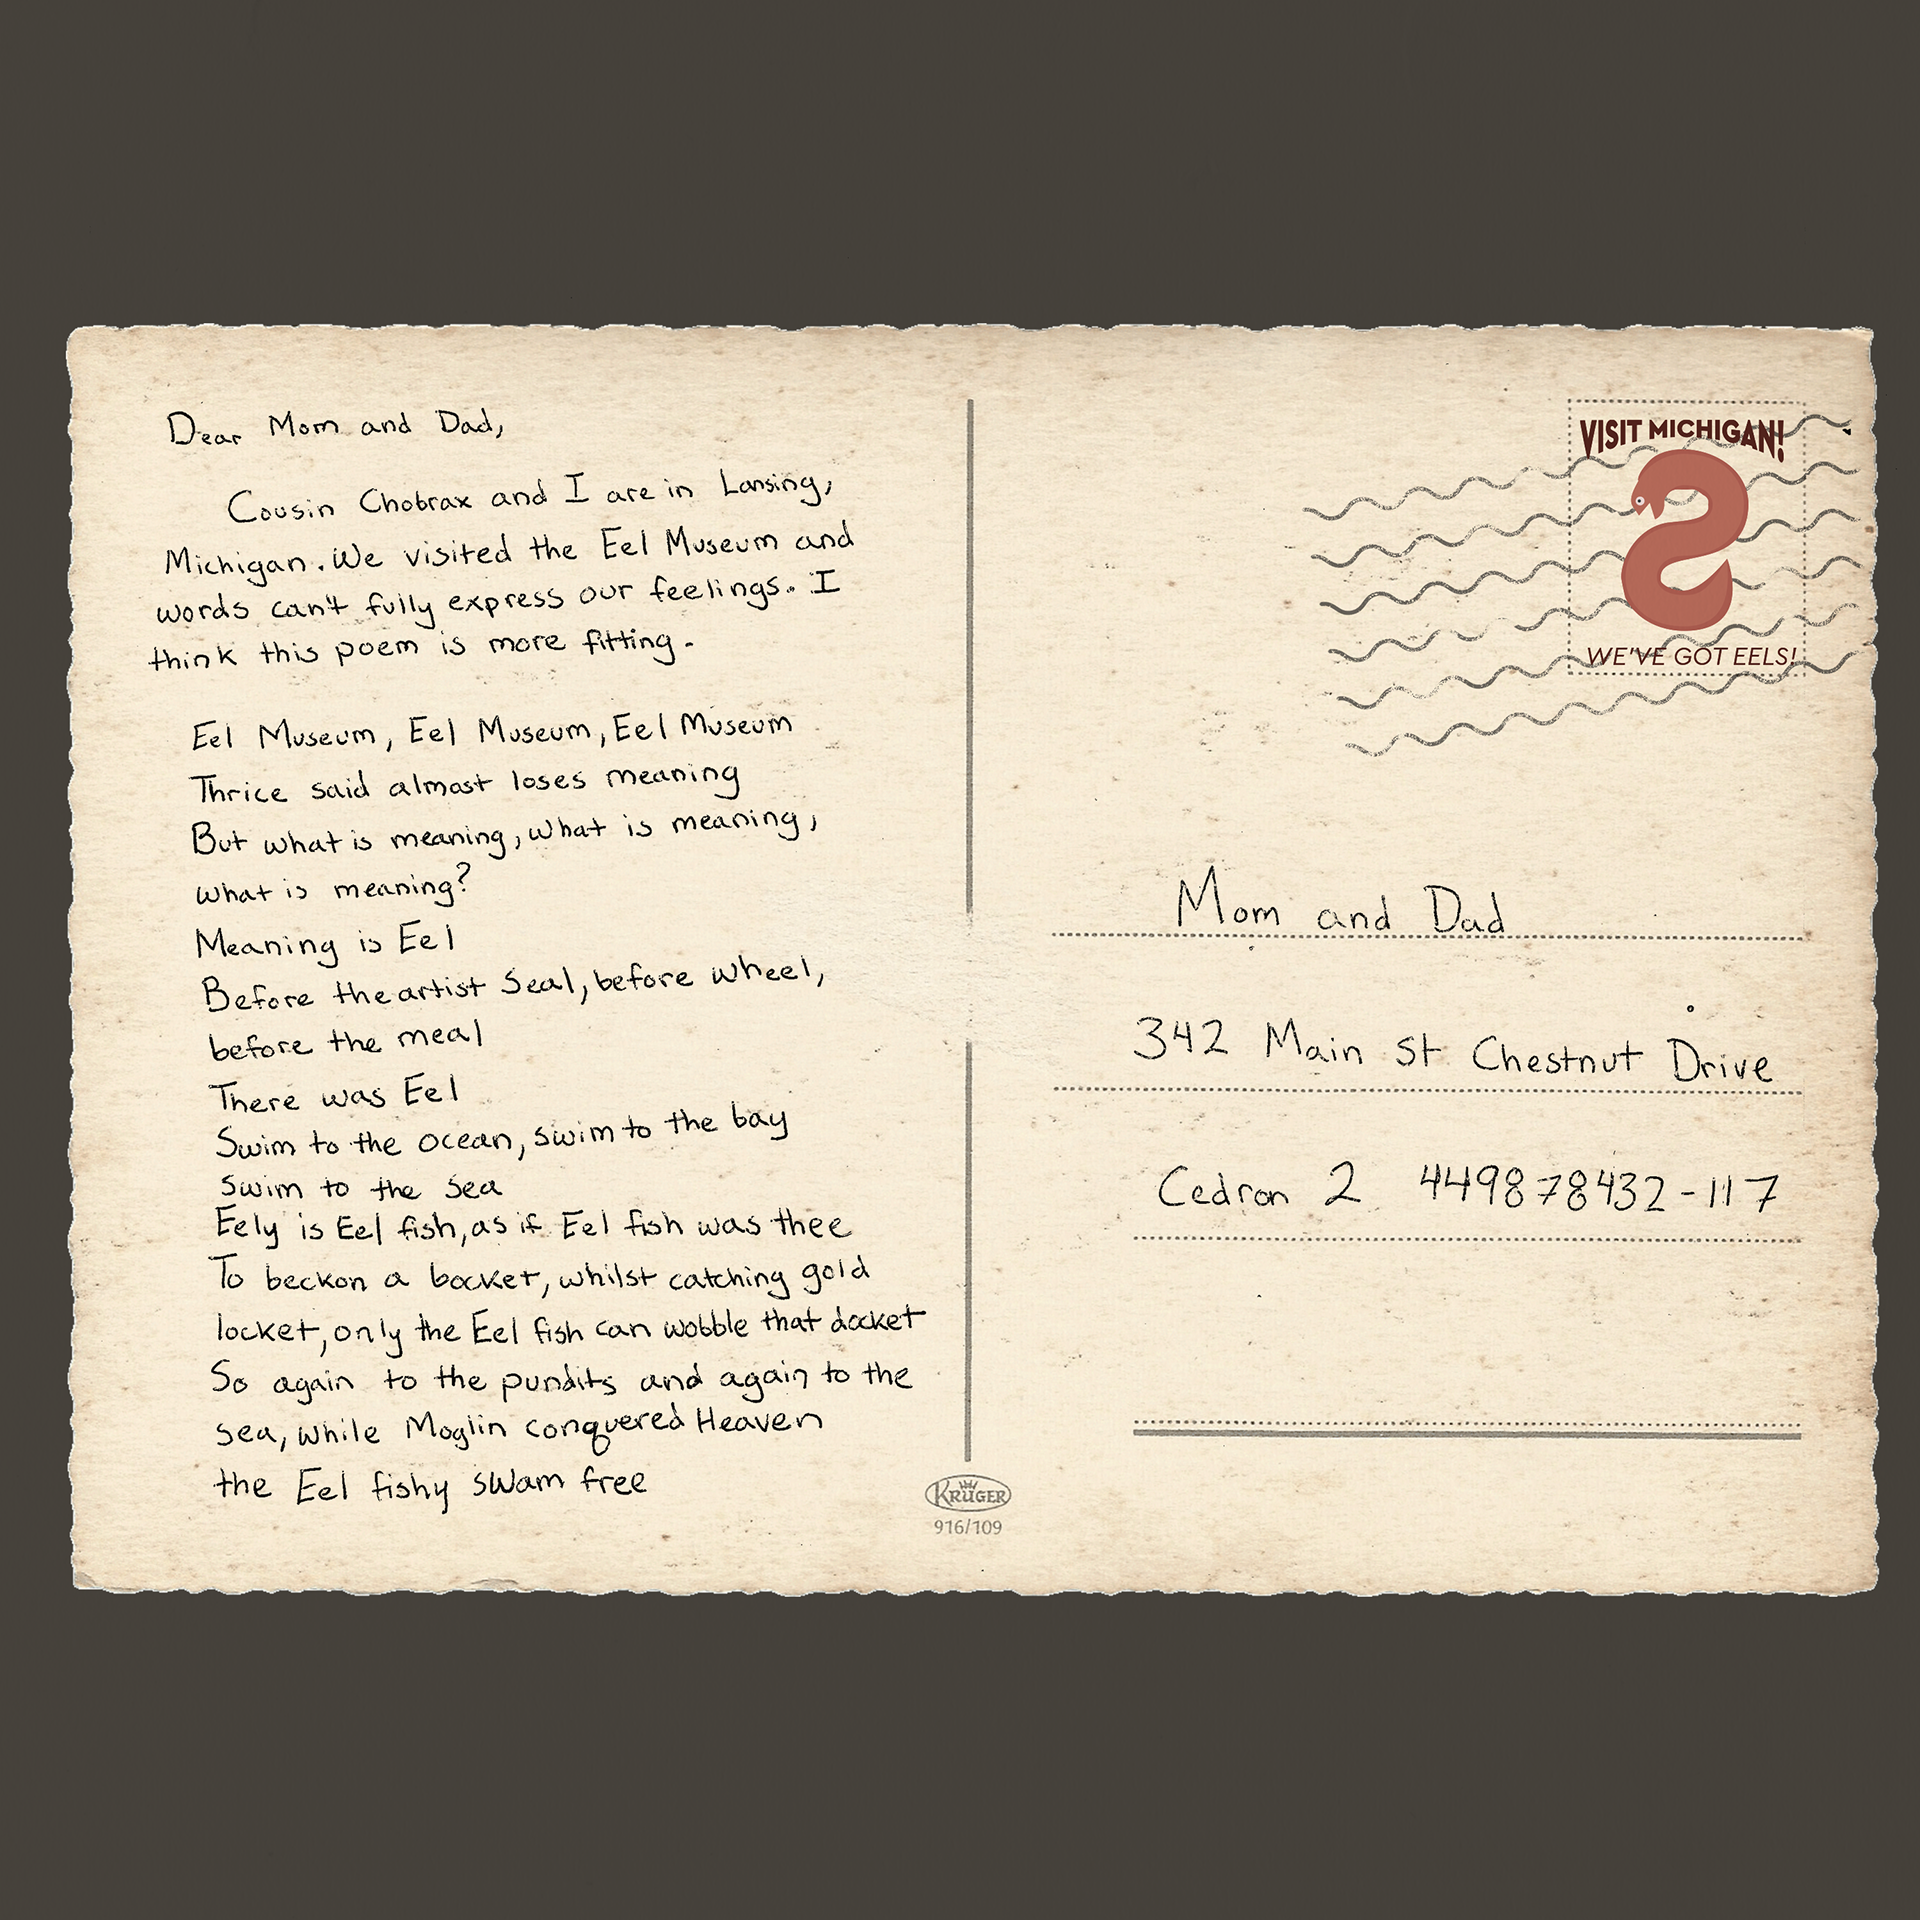 Dear Mom and Dad,
Cousin Chobrax and I are in Lansing,
Michigan. We visited the Eel Museum and
words can't fully express our feelings. I
think this poem is more fitting.
Eel Museum, Eel Museum, Eel Museum
Thrice said almost loses meaning
But what is meaning, what is meaning,
what is meaning?
Meaning is Eel
Before the artist Seal, before wheel,
before the meal
There was Eel
Swim to the ocean, swim to the bay
Swim to the sea
Eely is Eel fish, as if Eel fish was thee
To beckon a bocket, whilst catching gold
locket, only the Eel fish can wobble that docket
So again to the pundits and again to the
sea, while Moglin conquered Heaven
the Eel fishy swam free
KRÜGER
916/109
VISIT MICHIGAN!
WE'VE GOT EELS!
Mom and Dad
342 Main St Chestnut Drive
Cedron 2 449878432-117